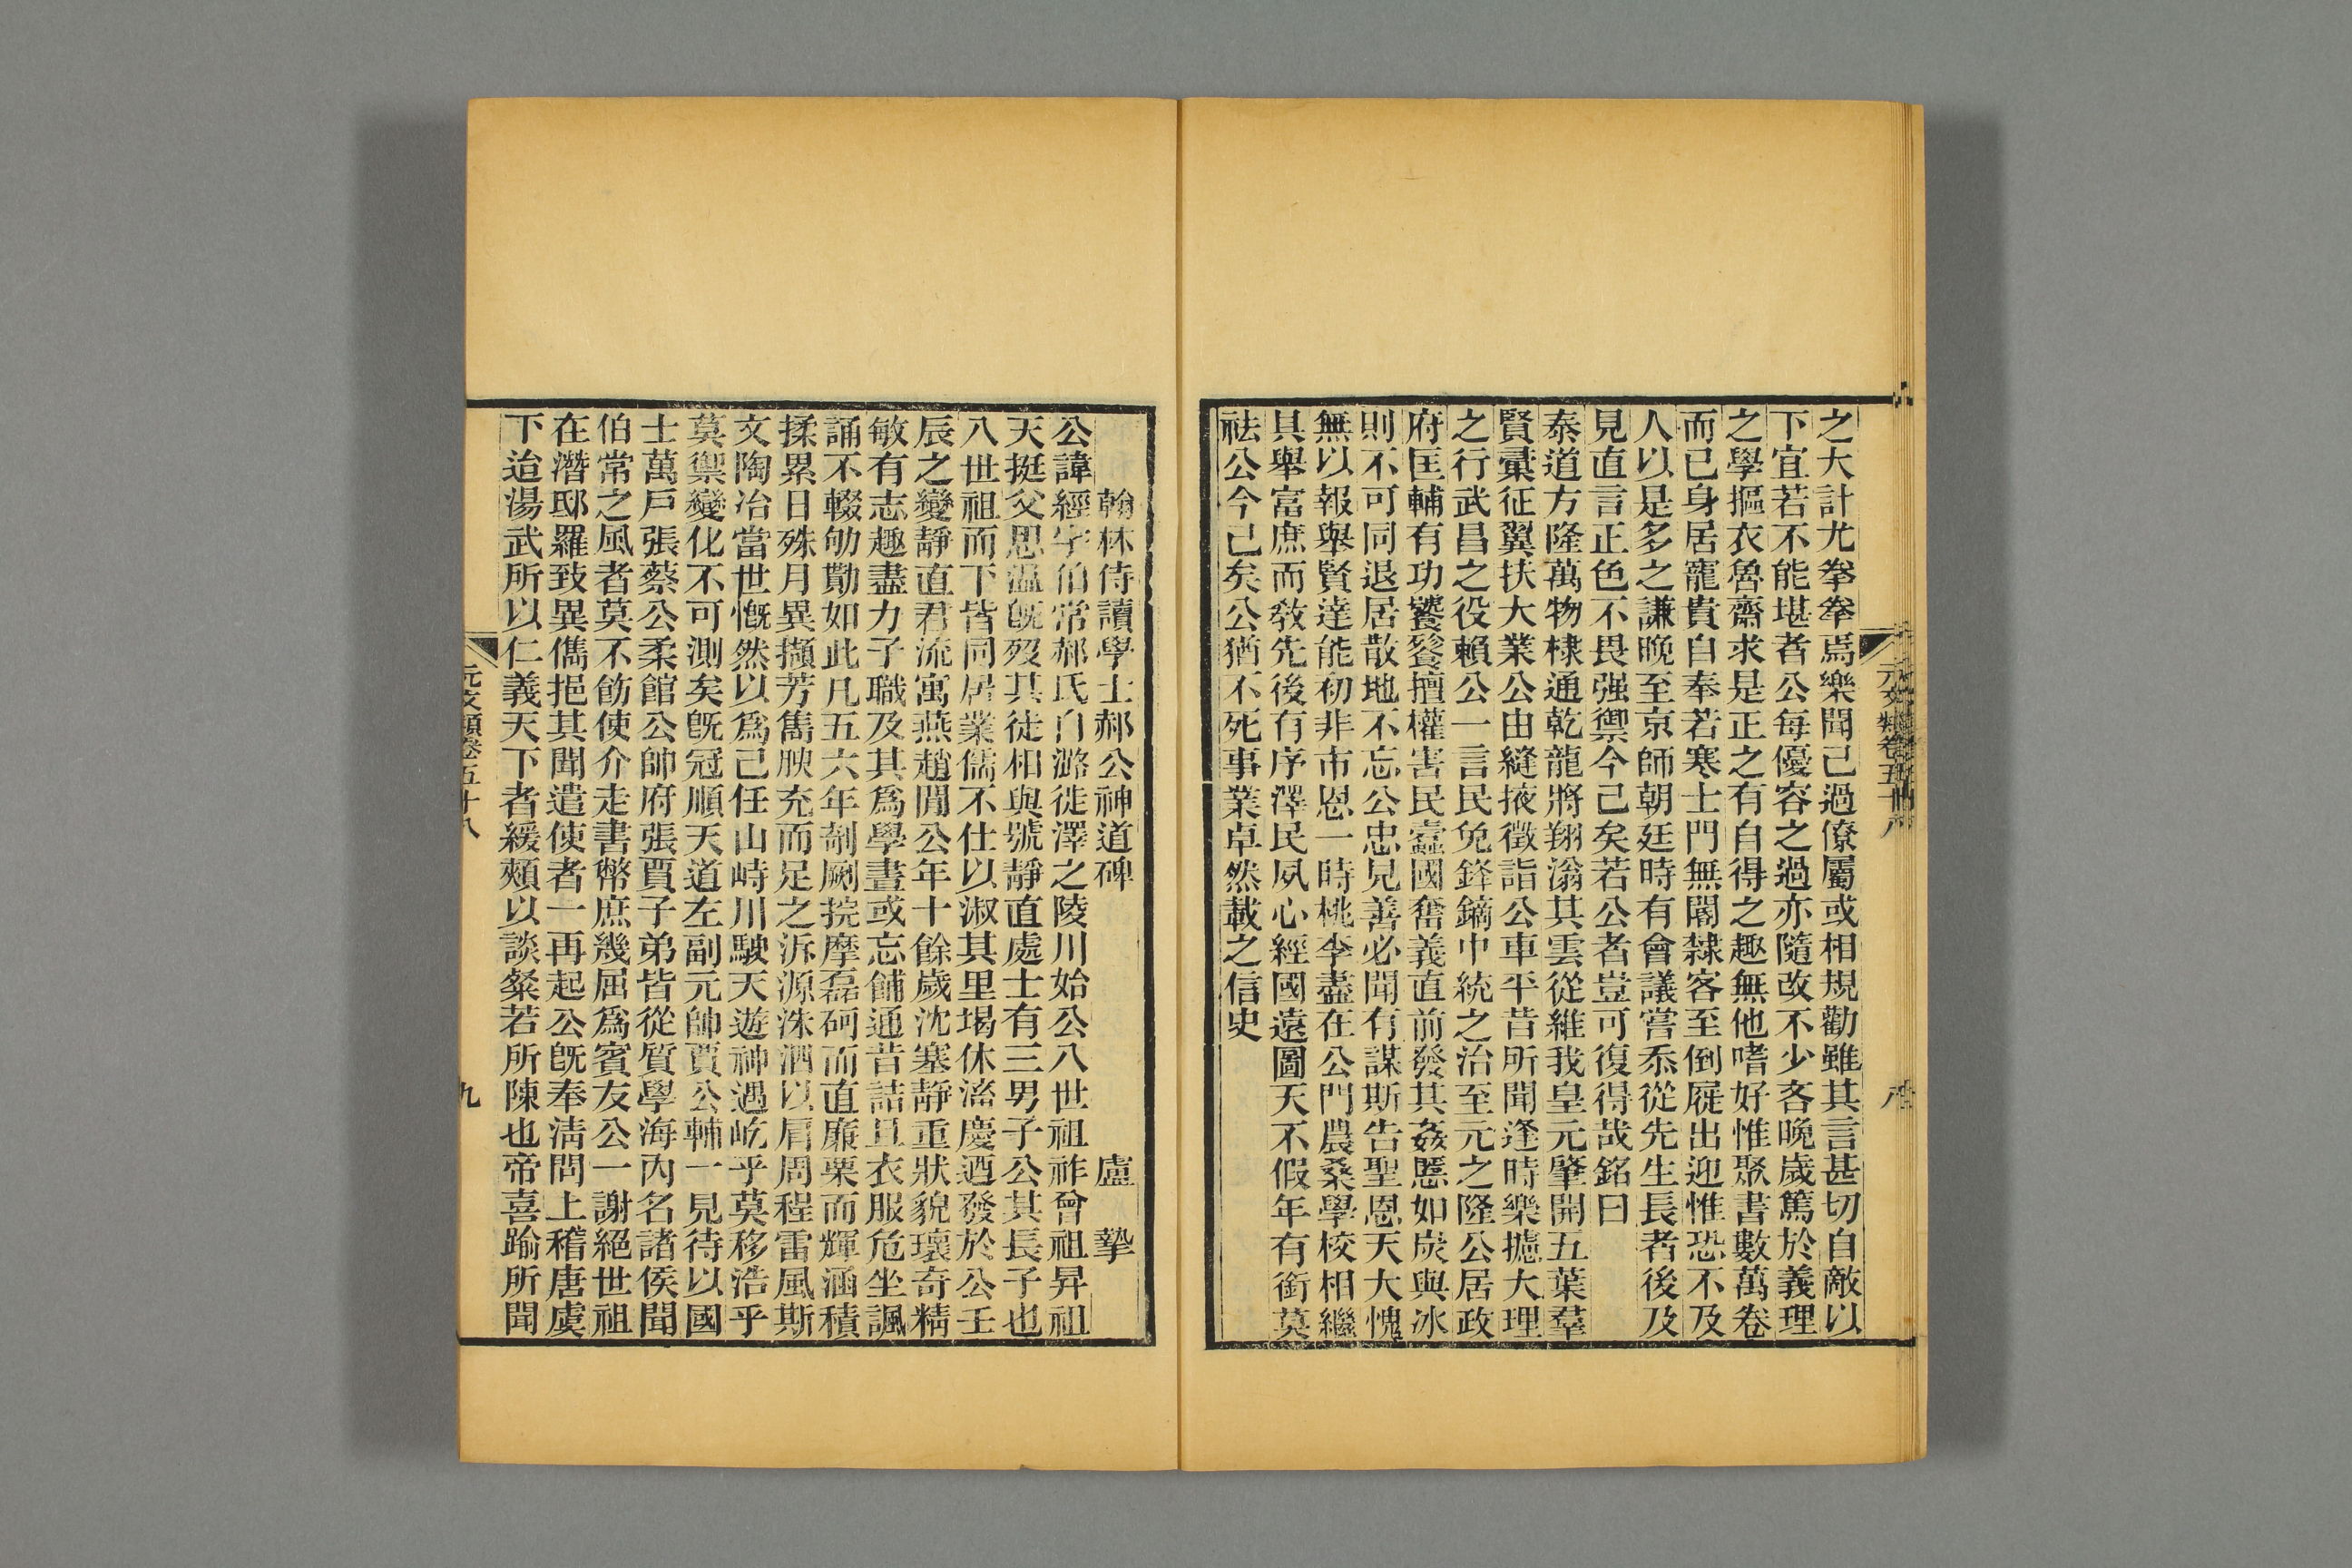 之大計尤拳拳焉樂聞己過僚屬或相規勸雖其言甚切自敵以
下宜若不能堪者公每優容之過亦隨改不少吝晚歲篤於義理
之學摳衣魯齋求是正之有自得之趣無他嗜好惟聚書數萬卷
而已身居寵貴自奉若寒士門無閽隸客至倒屣出迎惟恐不及
人以是多之謙晚至京師朝廷時有會議嘗忝從先生長者後及
見直言正色不畏强禦今已矣若公者豈可復得哉銘曰
泰道方隆萬物棣通乾龍將翔滃其雲從維我皇元肇開五葉羣
賢彙征翼扶大業公由縫掖徵詣公車平昔所聞逢時樂攄大理
之行武昌之役賴公一言民免鋒鏑中統之治至元之隆公居政
府匡輔有功饕餮擅權害民蠹國奮義直前發其姦慝如炭與冰
則不可同退居散地不忘公忠見善必聞有謀斯告聖恩天大愧
無以報舉賢達能初非市恩一時桃李盡在公門農桑學校相繼
具舉富庶而敎先後有序澤民夙心經國遠圖天不假年有銜莫
祛公今已矣公猶不死事業卓然載之信史
元文類卷五十八
八
翰林侍讀學士郝公神道碑　盧摯
公諱經字伯常郝氏自潞徙澤之陵川始公八世祖祚曾祖昇祖
天挺父思溫旣歿其徒相與號靜直處士有三男子公其長子也
八世祖而下皆同居業儒不仕以淑其里堨休滀慶迺發於公壬
辰之變靜直君流寓燕趙閒公年十餘歲沈塞靜重狀貌瓌奇精
敏有志趣盡力子職及其爲學晝或忘餔通昔詰旦衣服危坐諷
誦不輟劬勩如此凡五六年剞劂捖摩磊砢而直廉栗而輝涵積
揉累日殊月異擷芳雋腴充而足之泝源洙泗以眉周程雷風斯
文陶冶當世慨然以爲己任山峙川駛天遊神遇屹乎莫移浩乎
莫禦變化不可測矣旣冠順天道左副元帥賈公輔一見待以國
士萬戶張蔡公柔館公帥府張賈子弟皆從質學海內名諸侯聞
伯常之風者莫不飭使介走書幣庶幾屈爲賓友公一謝絕世祖
在潛邸羅致異儁挹其聞遣使者一再起公旣奉淸問上稽唐虞
下迨湯武所以仁義天下者緩頰以談粲若所陳也帝喜踰所聞
元文類卷五十八
九